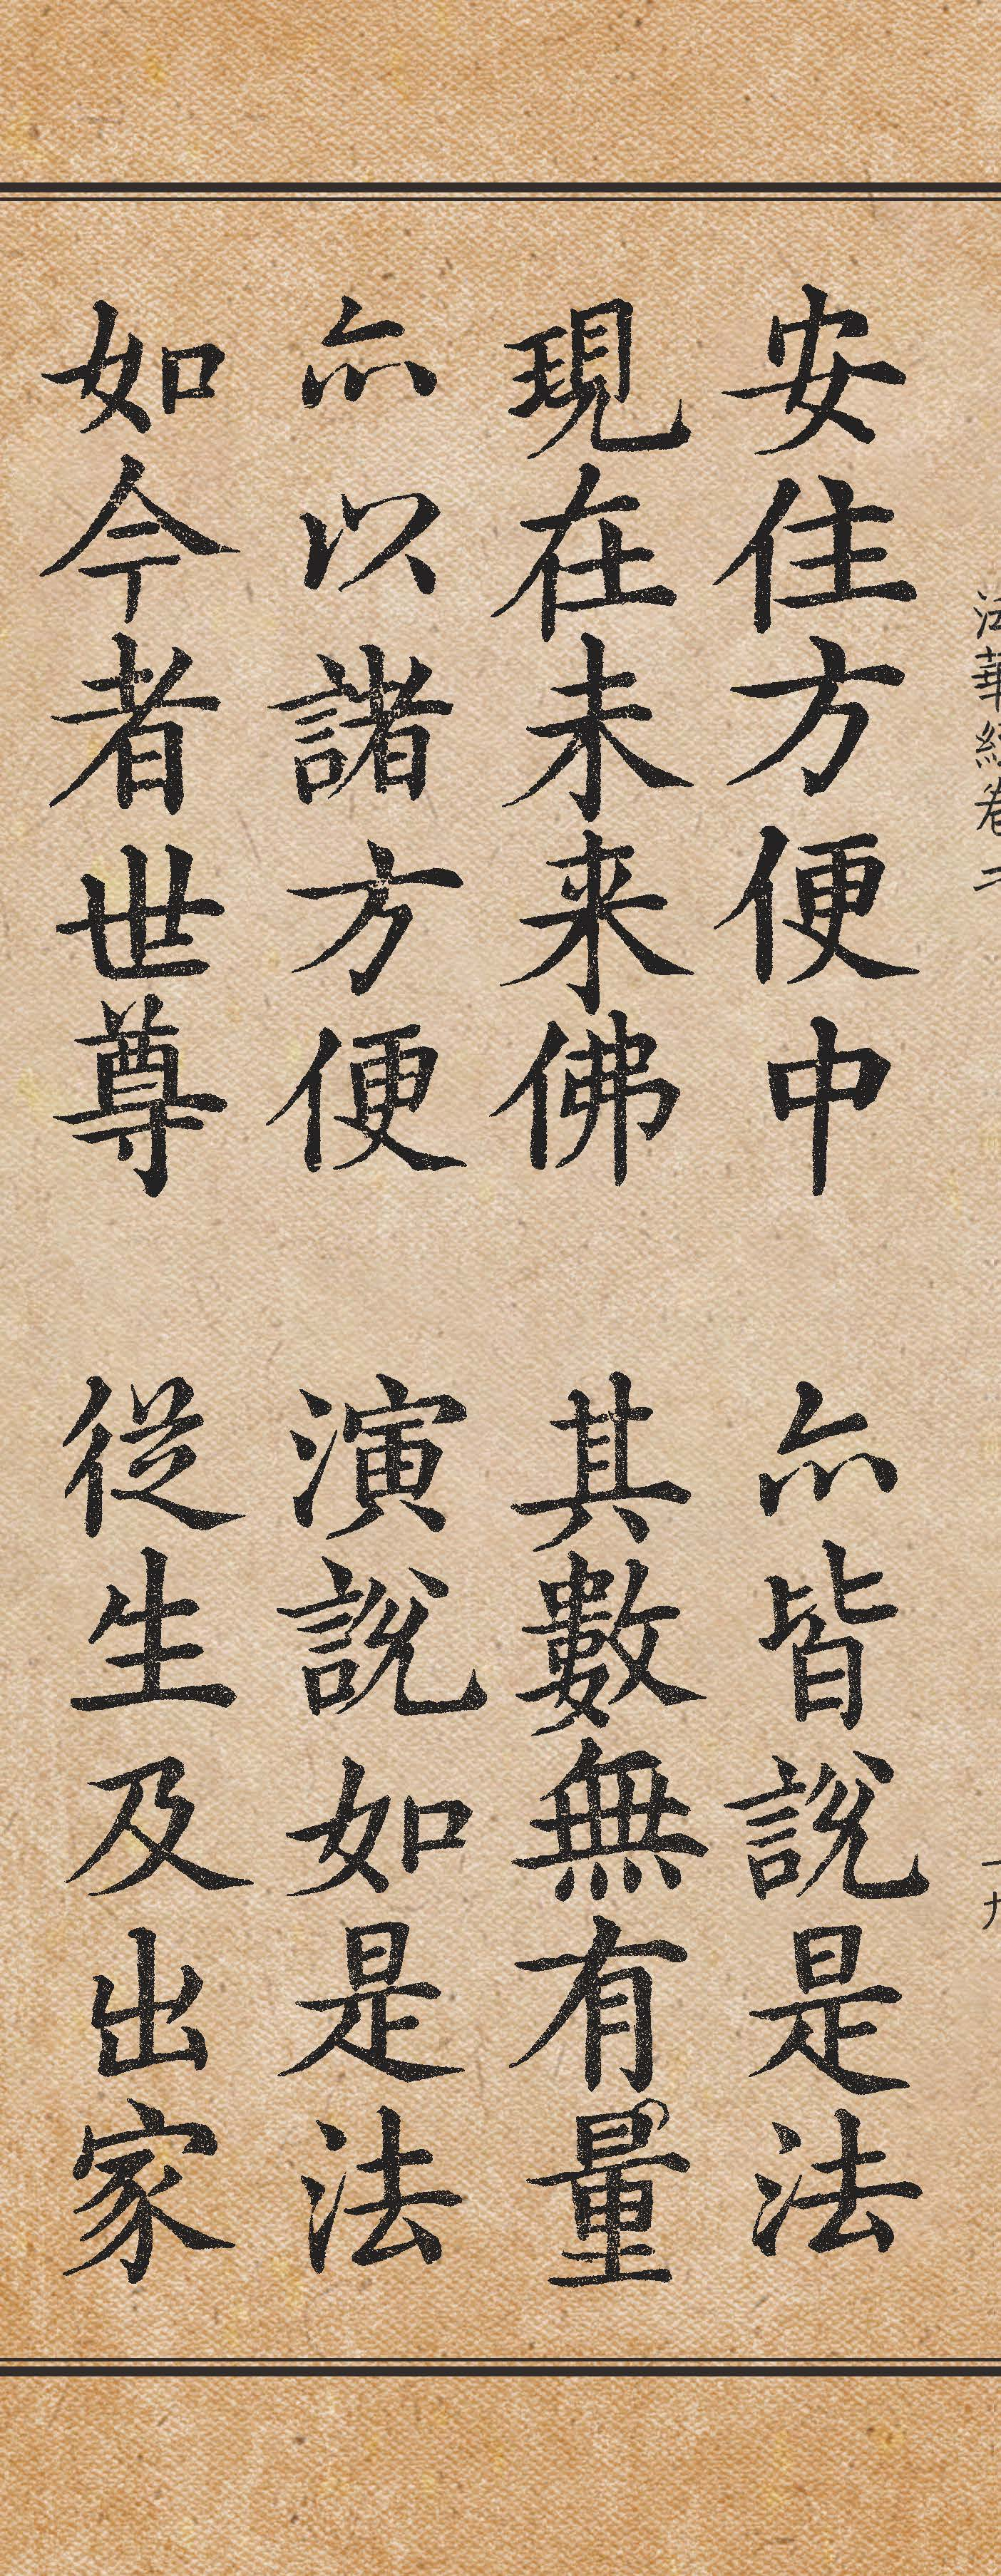 法華經卷二
十九
安住方便中 亦皆說是法
現在未来佛 其數無有量
亦以諸方便 演說如是法
如今者世尊 從生及出家